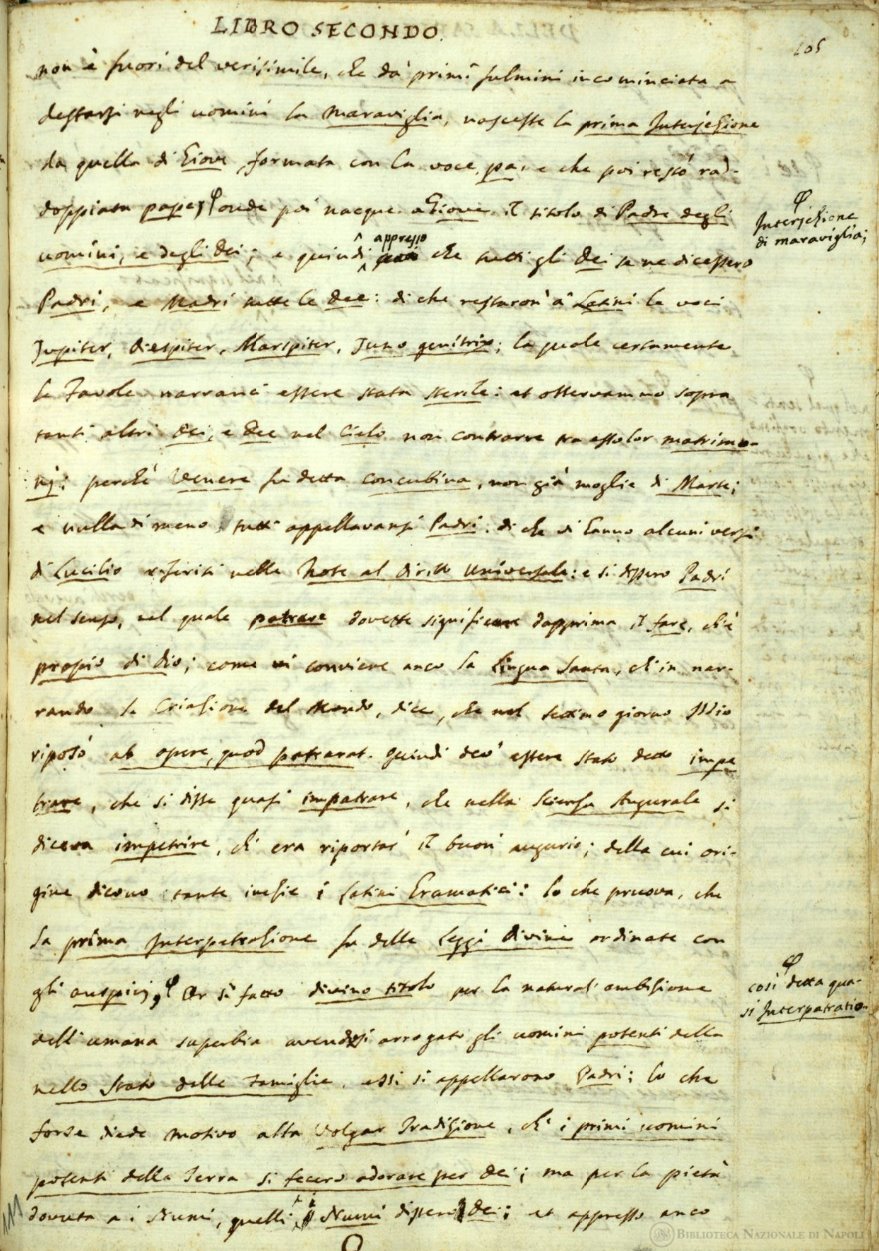 LIBRO SECONDO.
105
non è fuori del verisimile, che da' primi fulmini incominciata a
destarsi negli uomini la maraviglia, nascesse la prima Interjezione
da quella di Giove, formata con la voce, pa, e che poi restò rad-
doppiata pape; φ onde poi nacque a Giove il titolo di Padre degli
φ
Interjezione
di maraviglia;
uomini, e degli Dei; e quindi appresso che tutti gli Dei se ne dicessero
Padri, e Madri tutte le Dee: di che restaron' a' Latini le voci
Jupiter, Diespiter, Marspiter, Juno genitrix; la quale certamente
le Favole narranci essere stata sterile: et osservammo sopra
tanti altri Dei, e Dee nel Cielo non contrarre tra esso lor matrimo-
nj: perchè Venere fu detta concubina, non già moglie di Marte;
e nulladimeno tutti appellavansi Padri: di che vi hanno alcuni versi
di Lucilio riferiti nelle Note al Diritto Universale: e si dissero Padri
nel senso, nel quale patrare dovette significare dapprima il fare, ch'è
propio di Dio; come vi conviene anco la Lingua Santa, ch'in nar-
rando la Criazione del Mondo, dice, che nel settimo giorno Iddio
riposò ab opere, quod patrarat. quindi dev' essere stato detto impe
trare, che si disse quasi impatrare, che nella Scienza Augurale si
diceva impetrire, ch' era riportar' il buon' augurio; della cui ori-
gine dicono tante inezie i Latini Gramatici: lo che pruova, che
la prima Interpetrazione fu delle Leggi Divine ordinate con
gli auspicj, φ Or sì fatto divino titolo per la natural' ambizione
φ
così detta qua-
si Interpatratio.
dell' umana superbia avendosi arrogato gli uomini potenti della
nello Stato delle Famiglie, essi si appellarono Padri; lo che
forse diede motivo alla Volgar Tradizione, ch' i primi uomini
potenti della Terra si fecero adorare per Dei; ma per la pietà
dovuta a i Numi, quelli i Numi dissero Dei; et appresso anco
BIBLIOTECA NAZIONALE DI NAPOLI